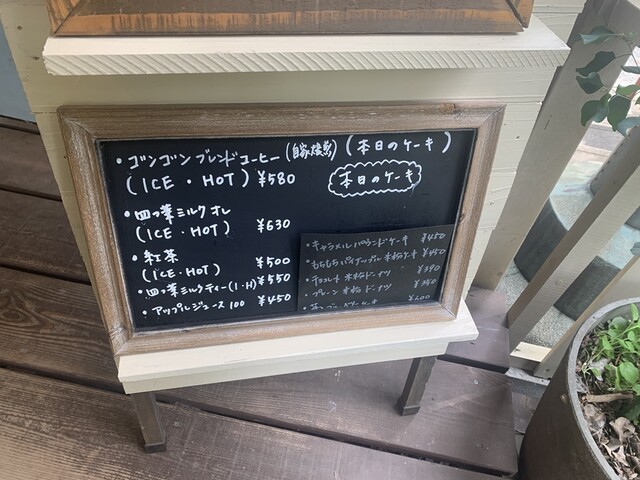 ・ゴンゴン ブレンドコーヒー (自家焙煎) (本日のケーキ)
(ICE・HOT) ¥580
・四つ葉ミルクオレ
(ICE・HOT) ¥630
・紅茶
(ICE・HOT) ¥500
・四つ葉ミルクティー(I・H) ¥550
・アップルジュース100 ¥450
本日のケーキ
・キャラメルパウンドケーキ ¥450
・もちもちパイナップル米粉ケーキ ¥450
・チョコレート米粉ドーナツ ¥390
・プレーン米粉ドーナツ ¥350